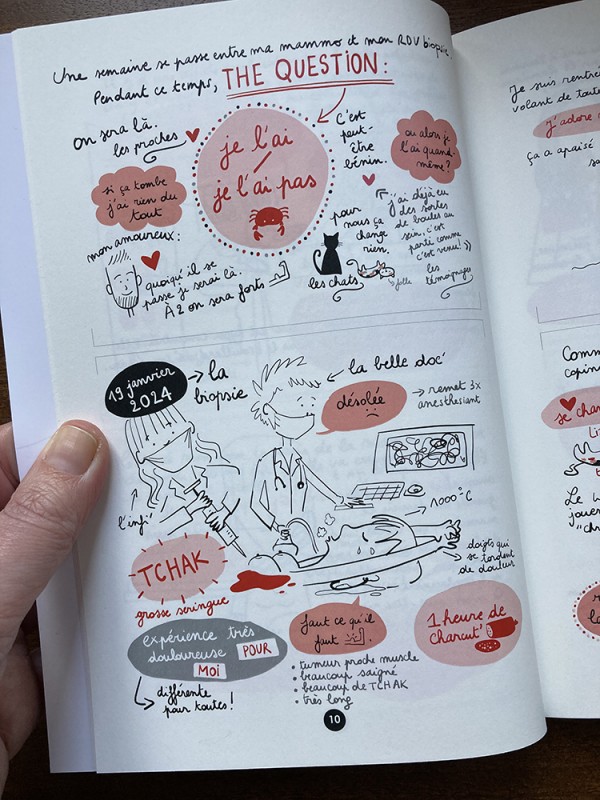 Une semaine se passe entre ma mammo et mon RDV biopsie.
Pendant ce temps, THE QUESTION :
on sera là.
les proches
je l'ai
/
je l'ai pas
C'est
peut-
être
bénin.
ou alors je
l'ai quand-
même ?
si ça tombe
j'ai rien du
tout
mon amoureux :
quoiqu'il se
passe je serai là.
À 2 on sera forts
pour
nous ça
change
rien.
les chats
folle
j'ai déjà eu
des sortes
de boules au
sein, c'est
parti comme
c'est venu ! »
les
témoignages
19 janvier
2024
la
biopsie
la belle doc'
désolée
remet 3x
anesthésiant
l'infi'
1000°C
doigts qui
se tordent
de douleur
TCHAK
grosse seringue
expérience très
douloureuse POUR
MOI
différente
pour toutes !
faut ce qu'il
faut
• tumeur proche muscle
• beaucoup saigné
• beaucoup de TCHAK
• très long
1 heure de
charcut'
10
Je suis rentré
volant de toute
j'adore
ça a apaisé
Comm
copin
je chan
Le
joue